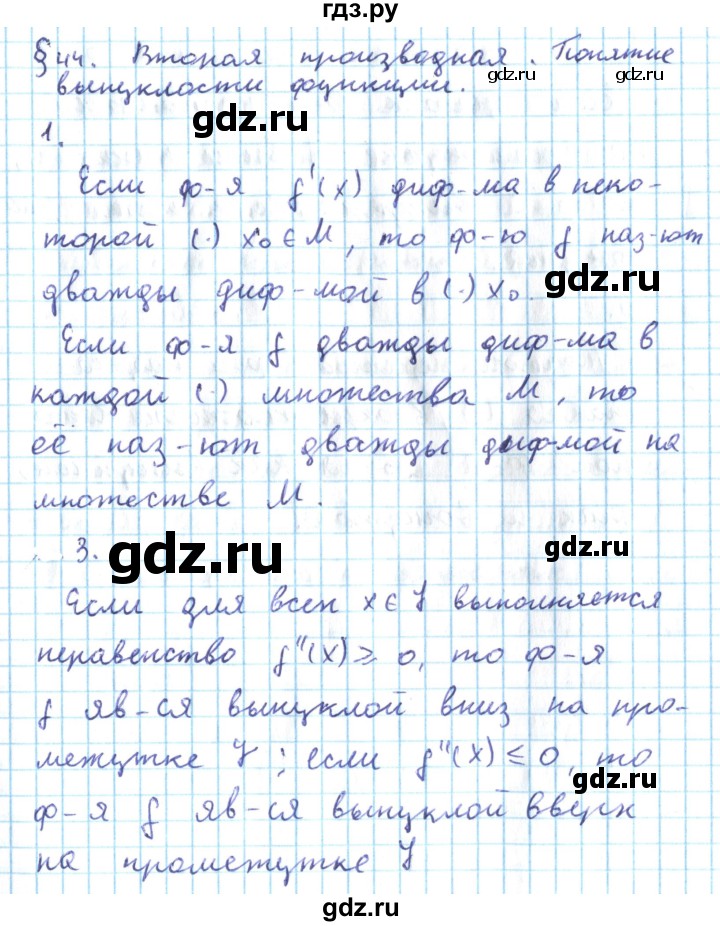 гдз.ру
§ 44. Вторая производная. Понятие
выпуклости функции.
gdz.ru
gdz.ru
1.
gdz.ru
Если ф-я f'(x) диф-ма в неко-
торой (·) x₀ ∈ M, то ф-ю f наз-ют
дважды диф-мой в (·) x₀.
gdz.ru
Если ф-я f дважды диф-ма в
каждой (·) множества M, то
её наз-ют дважды диф-мой на
множестве M.
3.
gdz.ru
gdz.ru
Если для всех x ∈ J выполняется
неравенство f''(x) ≥ 0, то ф-я
f яв-ся выпуклой вниз на про-
межутке J; если f''(x) ≤ 0, то
gdz.ru
ф-я f яв-ся выпуклой вверх
на промежутке J
gdz.ru